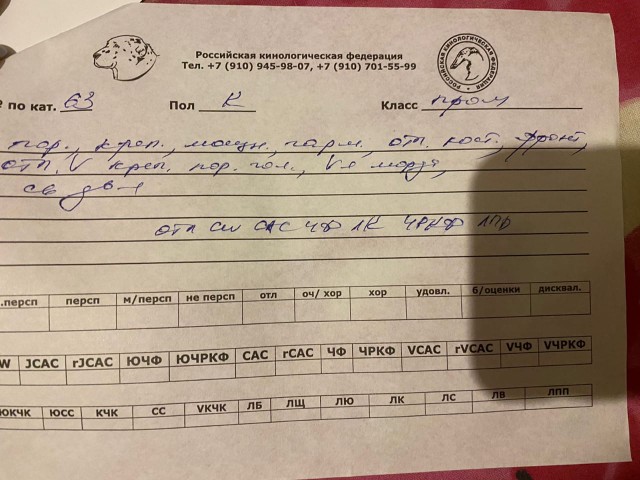 Российская кинологическая федерация
Тел. +7 (910) 945-98-07, +7 (910) 701-55-99
РОССИЙСКАЯ КИНОЛОГИЧЕСКАЯ ФЕДЕРАЦИЯ
№ по кат. 63 Пол К Класс пром
пор., креп., мощн., гарм., отл. кост., фронт,
отл. V креп. пор. гол., V я морда,
св дв-я
отл CW CAC ЧФ ЛК ЧРКФ ЛПР
.персп персп м/персп не персп отл оч/ хор хор удовл. б/оценки дисквал.
W JCAC rJCAC ЮЧФ ЮЧРКФ CAC rCAC ЧФ ЧРКФ VCAC rVCAC VЧФ VЧРКФ
ЮКЧК ЮСС КЧК СС VКЧК ЛБ ЛЩ ЛЮ ЛК ЛС ЛВ ЛПП